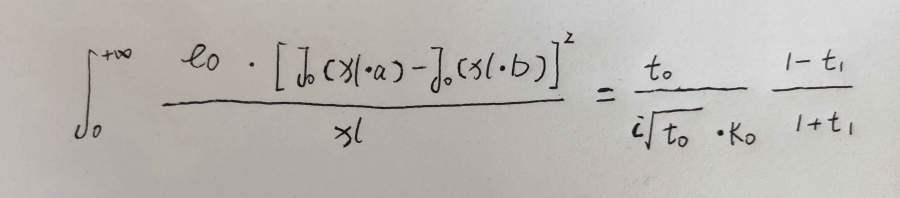 ∫₀^{+∞} \frac{e_0 · [J_0(xl·a) - J_0(xl·b)]^2}{xl} = \frac{t_0}{i\sqrt{t_0} · k_0} \frac{1 - t_1}{1 + t_1}